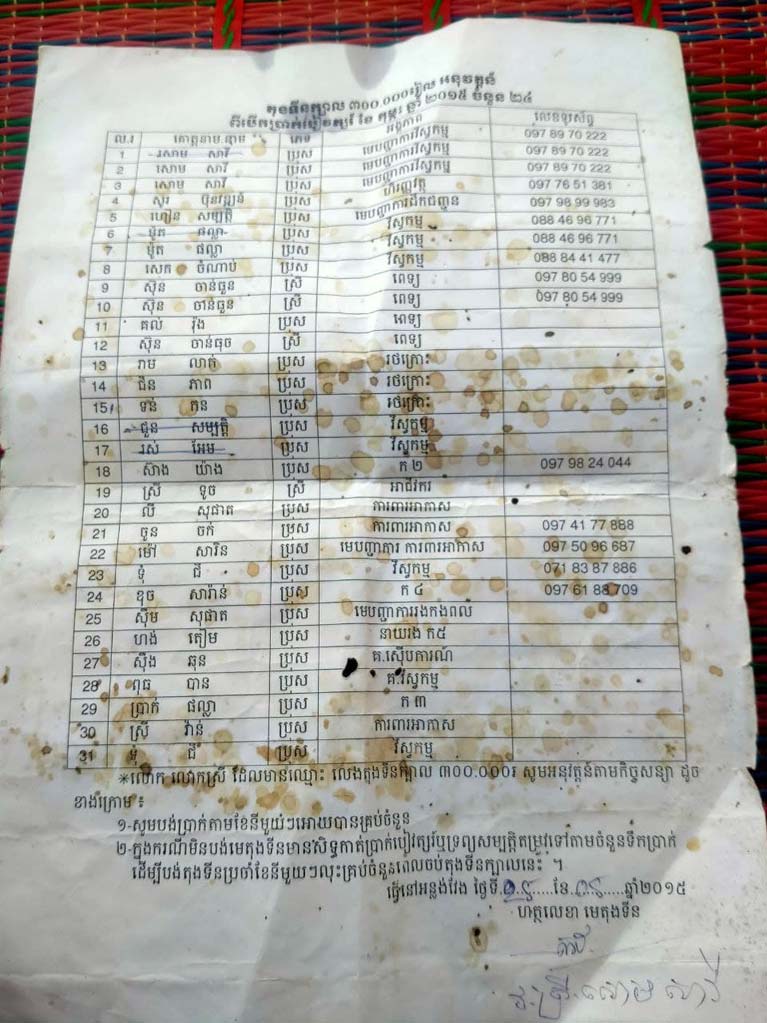 តុងទីនក្បាល ៣០០.០០០រៀល អនុវត្តន៍
ពីបើកប្រាក់បៀវត្សរ៍ ខែ កុម្ភៈ ឆ្នាំ ២០១៥ ចំនួន ២៤
ល.រ គោត្តនាម.នាម ភេទ អង្គភាព លេខទូរស័ព្ទ
1 សោម សាវី ប្រុស មេបញ្ជាការវិស្វកម្ម 097 89 70 222
2 សោម សាវី ប្រុស មេបញ្ជាការវិស្វកម្ម 097 89 70 222
3 សោម សាវី ប្រុស មេបញ្ជាការវិស្វកម្ម 097 89 70 222
4 សួរ ប៊ុនវឌ្ឍន៍ ប្រុស ហិរញ្ញវត្ថុ 097 76 51 381
5 ហឿន សម្បត្តិ ប្រុស មេបញ្ជាការដឹកជញ្ជូន 097 98 99 983
6 ម៉ុត ផល្លា ប្រុស វិស្វកម្ម 088 46 96 771
7 ម៉ុត ផល្លា ប្រុស វិស្វកម្ម 088 46 96 771
8 សេក ចំណាប់ ប្រុស វិស្វកម្ម 088 84 41 477
9 ស៊ុន ចាន់ធួន ស្រី ពេទ្យ 097 80 54 999
10 ស៊ុន ចាន់ធួន ស្រី ពេទ្យ 097 80 54 999
11 គល់ រ៉ុង ប្រុស ពេទ្យ
12 ស៊ុន ចាន់ធូច ស្រី ពេទ្យ
13 រាម លាត់ ប្រុស រថក្រោះ
14 ជិន ភាព ប្រុស រថក្រោះ
15 ទន់ កុន ប្រុស រថក្រោះ
16 ជួន សម្បត្តិ ប្រុស វិស្វកម្ម
17 រស់ អែម ប្រុស វិស្វកម្ម
18 ស៊ាង យ៉ាង ប្រុស ក ២ 097 98 24 044
19 ស្រី ទូច ស្រី អាជីវករ
20 លី សុផាត ប្រុស ការពារអាកាស
21 ចួន ចក់ ប្រុស ការពារអាកាស 097 41 77 888
22 ម៉ៅ សារិន ប្រុស មេបញ្ជាការ ការពារអាកាស 097 50 96 687
23 ទុំ ជី ប្រុស វិស្វកម្ម 071 83 87 886
24 ឌុច សារ៉ាន់ ប្រុស ក ៤ 097 61 88 709
25 ស៊ឹម សុផាត ប្រុស មេបញ្ជាការរងកងពល
26 ហង់ តឿម ប្រុស នាយរង ក៥
27 ស៊ឹង ឆុន ប្រុស គ.ស៊ើបការណ៍
28 ពុធ បាន ប្រុស គ.វិស្វកម្ម
29 ប្រាក់ ផល្លា ប្រុស ក ៣
30 ស្រី វ៉ាន់ ប្រុស ការពារអាកាស
31 ទុំ ជី ប្រុស វិស្វកម្ម
*លោក លោកស្រី ដែលមានឈ្មោះ លេងតុងទីនក្បាល ៣០០.០០០រ សូមអនុវត្តន៍តាមកិច្ចសន្យា ដូច
ខាងក្រោម ៖
១-សូមបង់ប្រាក់តាមខែនីមួយៗអោយបានគ្រប់ចំនួន
២-ក្នុងករណីមិនបង់មេតុងទីនមានសិទ្ធកាត់ប្រាក់បៀវត្សរ៍ឬទ្រព្យសម្បត្តិតម្រូវទៅតាមចំនួនទឹកប្រាក់
ដើម្បីបង់តុងទីនប្រចាំខែនីមួយៗលុះគ្រប់ចំនួនពេលចប់តុងទីនក្បាលនេះ ។
ធ្វើនៅអន្លង់វែង ថ្ងៃទី.........ខែ.........ឆ្នាំ២០១៥
ហត្ថលេខា មេតុងទីន
សោម សាវី